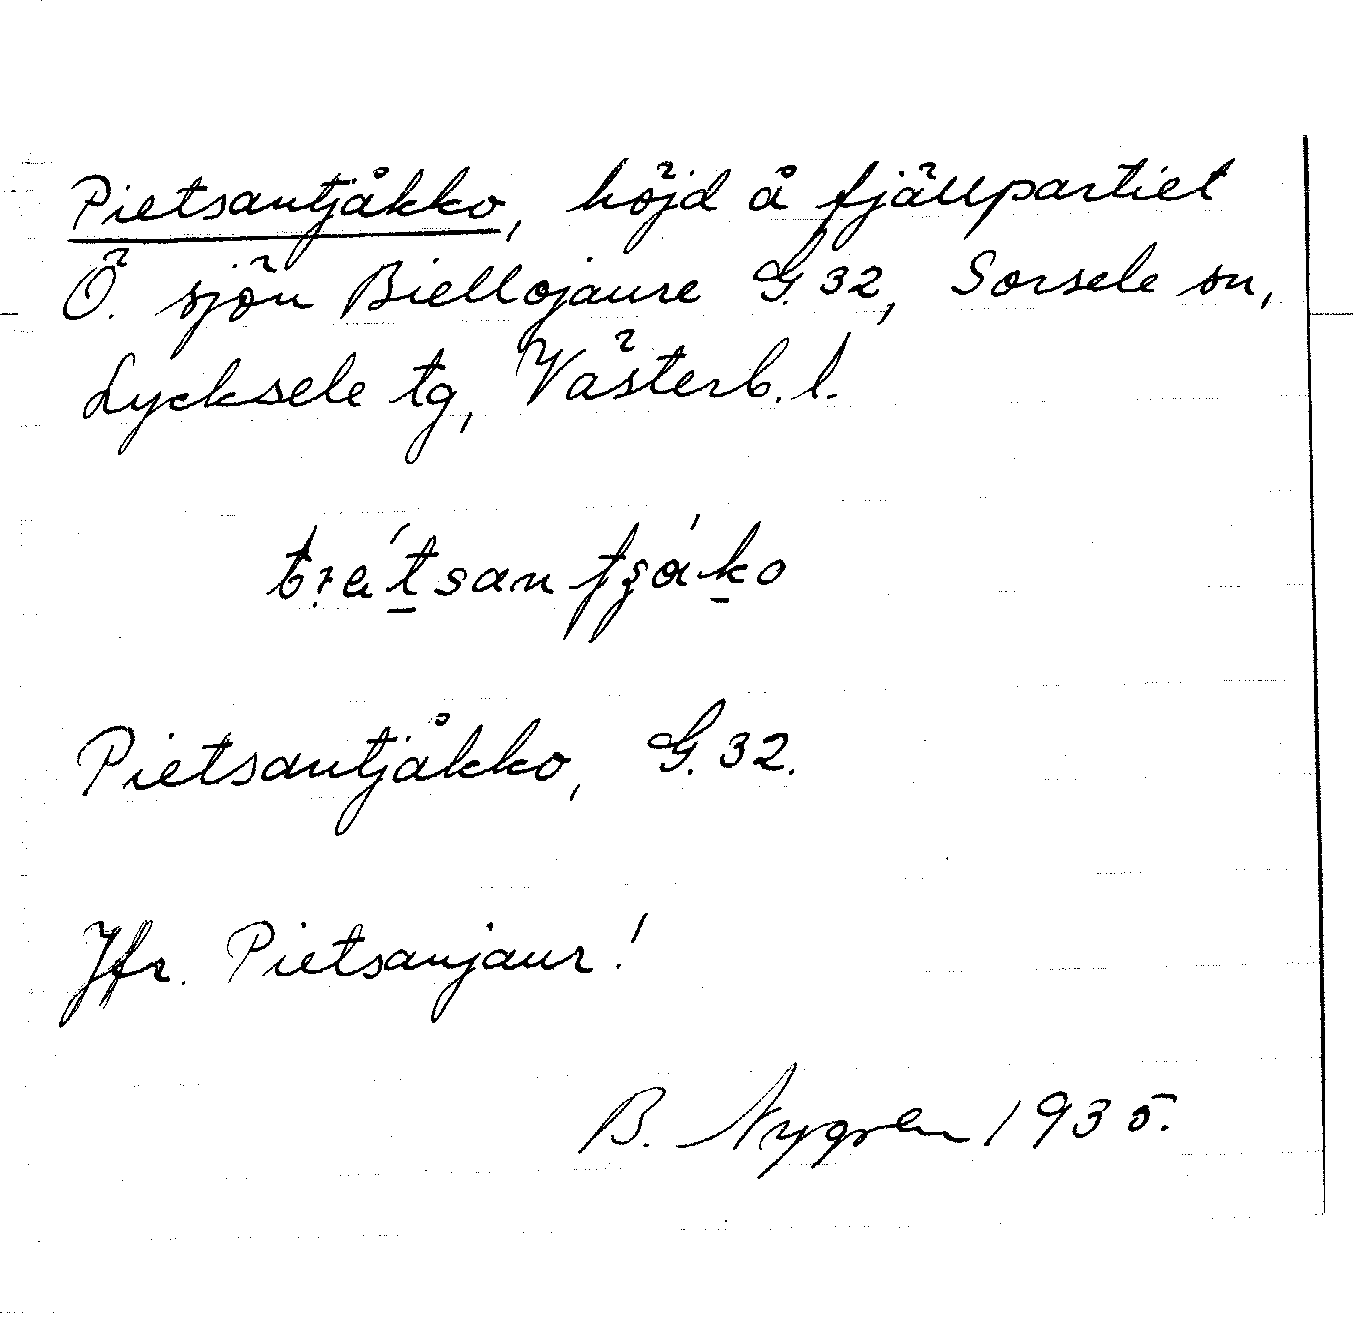 Pietsantjåkko, höjd å fjällpartiet
Ö. sjön Biellojaure G. 32, Sorsele sn,
Lycksele tg, Västerb. l.
Pietsantjåkko, G. 32.
Jfr. Pietsanjaur!
B. Nygren 1935.